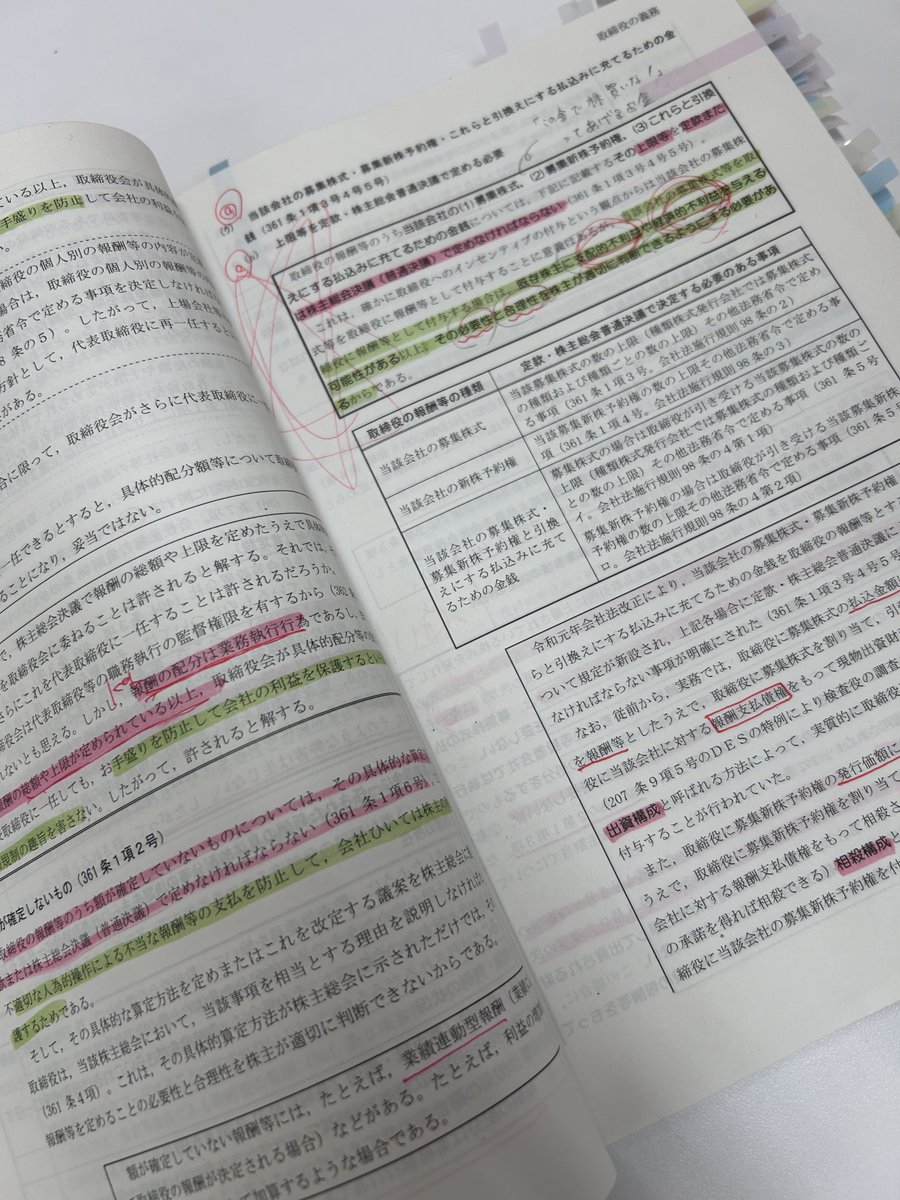 ている以上,取締役会が具体
手盛りを防止して会社の利益
締役の個人別の報酬等の内容が
場合は,取締役の個人別の報酬等の
務省令で定める事項を決定しなければ
8条の5)。したがって,上場会社
方針として,代表取締役に再一任すると
がある。
合に限って,取締役会がさらに代表取締役に
一任できるとすると,具体的配分額等について取締
ることになり,妥当ではない。
で,株主総会決議で報酬の総額や上限を定めたうえで具体
を取締役会に委ねることは許されると解する。それでは,
さらにこれを代表取締役に一任することは許されるだろうか。
取締役会は代表取締役等の職務執行の監督権限を有するから(362条
しないとも思える。しかし,報酬の配分は業務執行行為であるし,
報酬の総額や上限が定められている以上,取締役会が具体的配分等の
取締役に一任しても,お手盛りを防止して会社の利益を保護するという
規制の趣旨を害さない。したがって,許されると解する。
が確定しないもの(361条1項2号)
取締役の報酬等のうち額が確定していないものについては,その具体的な算定
款または株主総会決議(普通決議)で定めなければならない(361条1項
不適切な人為的操作による不当な報酬等の支払を防止して,会社ひいては株主
護するためである。
そして,その具体的な算定方法を定めまたはこれを改定する議案を株主総会に
取締役は,当該株主総会において,当該事項を相当とする理由を説明しなければ
(361条4項)。これは,その具体的算定方法が株主総会に示されただけでは,そ
報酬等を定めることの必要性と合理性を株主が適切に判断できないからである。
額が確定していない報酬等には,たとえば,業績連動型報酬(業績
て取締役の報酬が決定される場合)などがある。たとえば,利益の増
て加算するような場合である。
取締役の義務
当該会社の募集株式・募集新株予約権・これらと引換えにする払込みに充てるための金
銭(361条1項3号4号5号)
上限等を定款・株主総会普通決議で定める必要
取締役の報酬等のうち当該会社の(1)募集株式,(2)募集新株予約権,(3)これらと引換
えにする払込みに充てるための金銭については,下記に記載するその上限等を定款また
は株主総会決議(普通決議)で定めなければならない(361条1項3号4号5号)。
これは,確かに取締役へのインセンティブの付与という観点からは当該会社の募集株
式等を取締役に報酬等として付与することに意義はあるが,当該会社の募集株式等を取
締役に報酬等として付与する場合は,既存株主に支配的不利益や経済的不利益を与える
可能性がある以上,その必要性と合理性を株主が適切に判断できるようにする必要があ
るからである。
取締役の報酬等の種類
定款・株主総会普通決議で決定する必要のある事項
当該会社の募集株式
当該募集株式の数の上限(種類株式発行会社では募集株式
の種類および種類ごとの数の上限)その他法務省令で定め
る事項(361条1項3号。会社法施行規則98条の2)
当該会社の新株予約権
当該募集新株予約権の数の上限その他法務省令で定める事
項(361条1項4号。会社法施行規則98条の3)
当該会社の募集株式・
募集新株予約権と引換
えにする払込みに充て
るための金銭
募集株式の場合は取締役が引き受ける当該募集株式の数の
上限(種類株式発行会社では募集株式の種類および種類ご
との数の上限)その他法務省令で定める事項(361条1項5号
イ。会社法施行規則98条の4第1項)
募集新株予約権の場合は取締役が引き受ける当該募集新株
予約権の数の上限その他法務省令で定める事項(361条1項5号
ロ。会社法施行規則98条の4第2項)
令和元年会社法改正により,当該会社の募集株式・募集新株予約権
らと引換えにする払込みに充てるための金銭を取締役の報酬等とする
ついて規定が新設され,上記各場合に定款・株主総会普通決議に
なければならない事項が明確にされた(361条1項3号4号5号)
なお,従前から,実務では,取締役に募集株式の払込金額
を報酬等としたうえで,取締役に募集株式を割り当て,引
役に当該会社に対する報酬支払債権をもって現物出資財
(207条9項5号のDESの特例により検査役の調査
出資構成と呼ばれる方法によって,実質的に取締役
付与することが行われていた。
また,取締役に募集新株予約権の発行価額に
うえで,取締役に募集新株予約権を割り当て
会社に対する報酬支払債権をもって相殺さ
の承諾を得れば相殺できる)相殺構成と
締役に当該会社の募集新株予約権を付